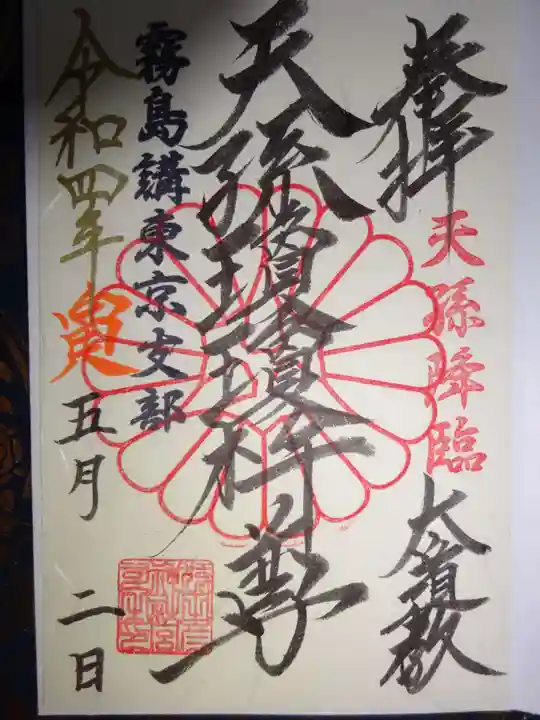 奉拝
天孫降臨
大着教
天孫瓊瓊杵尊
霧島講東京支部
令和四年
寅
五月
二日